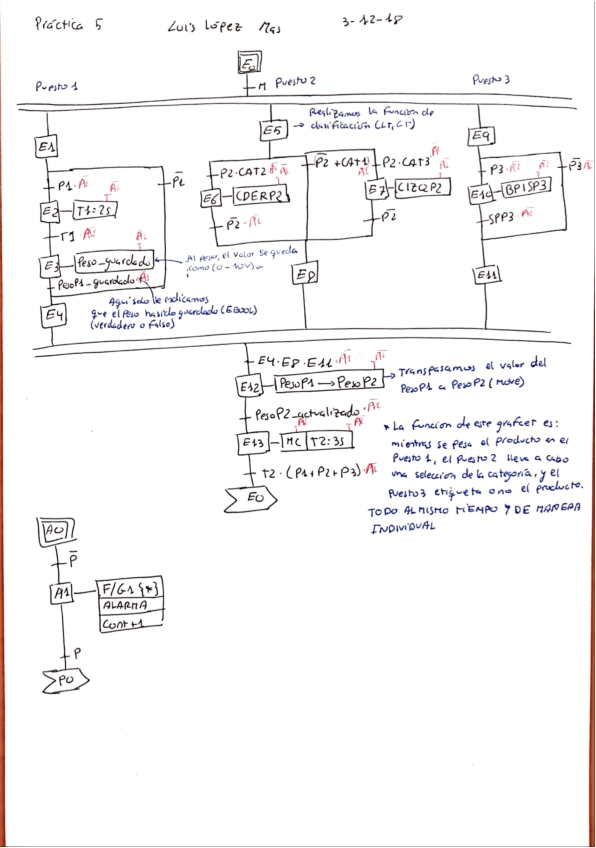 Práctica 5 Luis López Mas 3-12-18
E0
M
Puesto 1 Puesto 2 Puesto 3
Realizamos la función de
clasificación (LT, GT)
E1 E5 E9
P1·A̅i̅ P̅1̅
E2 T1:2s A̅i̅
T1·A̅i̅
A̅i̅
E3 Peso_guardado
Al pesar, el valor se queda
como (0-10V)
PesoP1_guardado·A̅i̅
Aquí solo le indicamos
que el peso ha sido guardado (EBOOL)
(verdadero o falso)
E4
P2·CAT2·A̅i̅ A̅i̅
E6 CDERP2
P̅2̅·A̅i̅
P̅2̅+CAT1·A̅i̅
P2·CAT3·A̅i̅
A̅i̅
E7 CIZQP2
P̅2̅
E8
P3·A̅i̅ A̅i̅ P̅3̅·A̅i̅
E10 BPISP3
SPP3·A̅i̅
E11
E4·E8·E11·A̅i̅ A̅i̅
E12 PesoP1→PesoP2
Transpasamos el valor del
PesoP1 a PesoP2 (MOVE)
PesoP2_actualizado·A̅i̅
A̅i̅ A̅i̅
E13 MC T2:3s
T2·(P1+P2+P3)·A̅i̅
E0
* La función de este grafcet es:
mientras se pesa el producto en el
Puesto 1, el Puesto 2 lleva a cabo
una selección de la categoría, y el
Puesto 3 etiqueta o no el producto.
TODO AL MISMO TIEMPO Y DE MANERA
INDIVIDUAL
A0
P̅
A1 F/G1{*}
ALARMA
Cont+1
P
P0